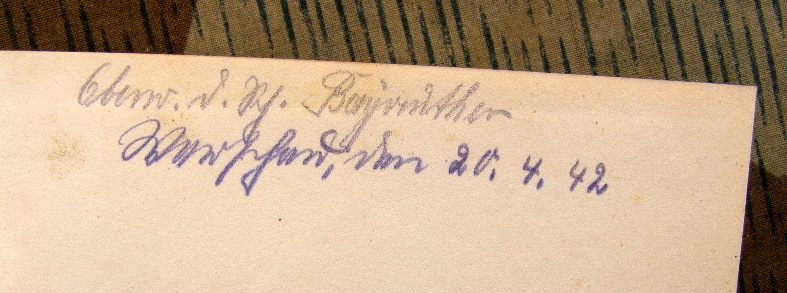 Oberw. d. Sch. Bayreuther
Warschau, den 20. 4. 42